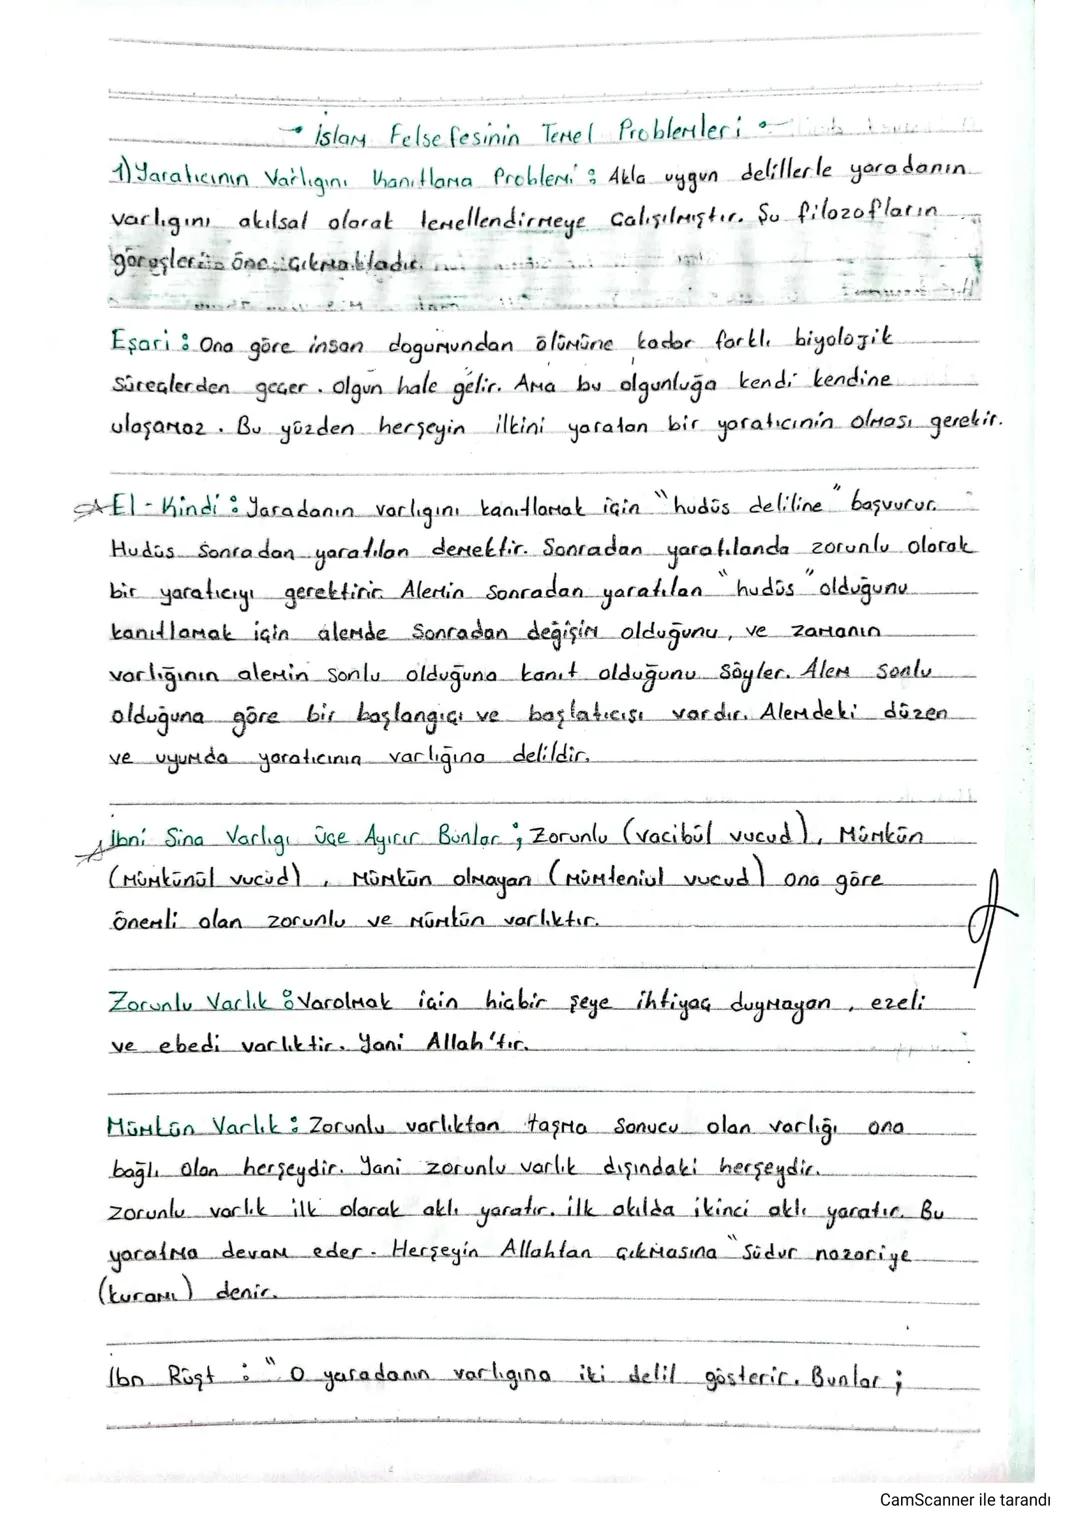 İslam Felsefesinin Temel Problemleri
1) Yaratıcının Varlıgını Kanıtlama Problemi : Akla uygun delillerle yaradanın
varlıgını akılsal olarak temellendirmeye Calışılmıştır. Şu filozofların
görüşleri öne Çıkmaktadır.
Eşari : Ona göre insan dogumundan ölümüne kadar farklı biyolojik
Süreçlerden geçer. Olgun hale gelir. Ama bu olgunluğa kendi kendine
ulaşamaz. Bu yüzden herşeyin ilkini yaratan bir yaratıcının olması gerekir.
El - Kindi : Yaradanın varlıgını kanıtlamak için "hudüs deliline" başvurur.
Hudüs Sonradan yaratılan demektir. Sonradan yaratılanda zorunlu olarak
bir yaratıcıyı gerektirir. Alemin Sonradan yaratılan "hudüs" olduğunu
kanıtlamak için alemde Sonradan değişim olduğunu, ve zamanın
varlığının alemin Sonlu olduğuna kanıt olduğunu Söyler. Alem Sonlu
olduğuna göre bir başlangıçı ve başlatıcısı vardır. Alemdeki düzen
ve uyumda yaratıcının varlığına delildir.
İbni Sina Varlıgı üçe Ayırır Bunlar ; Zorunlu (vacibül vucud), Mümkün
(Mümkünül vucüd), Mümkün olmayan (Mümteniul vucud) ona göre
önemli olan zorunlu ve Mümkün varlıktır.
Zorunlu Varlık : Varolmak için hiçbir şeye ihtiyaç duymayan, ezeli
ve ebedi varlıktir. Yani Allah'tır.
Mümkün Varlık : Zorunlu varlıktan taşma Sonucu olan varlığı ona
bağlı olan herşeydir. Yani zorunlu varlık dışındaki herşeydir.
zorunlu varlık ilk olarak aklı yaratır. ilk akılda ikinci aklı yaratır. Bu
yaratma devam eder. Herşeyin Allahtan çıkmasına "Südur nazariye
(kuramı) denir.
İbn Rüşt : "O yaradanın varlıgına iki delil gösterir. Bunlar ;
CamScanner ile tarandı